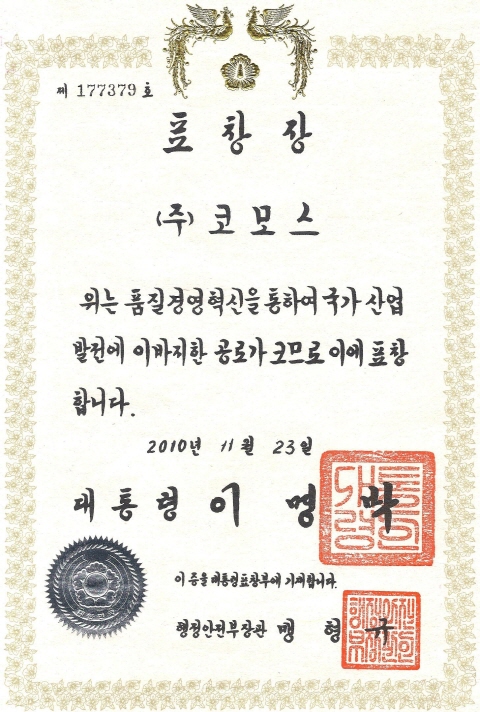 제 177379 호
표창장
(주) 코모스
위는 품질경영혁신을 통하여 국가 산업
발전에 이바지한 공로가 크므로 이에 표창
합니다.
2010년 11월 23일
대통령 이명박
이 증을 대통령표창부에 기재합니다.
행정안전부장관 맹형규